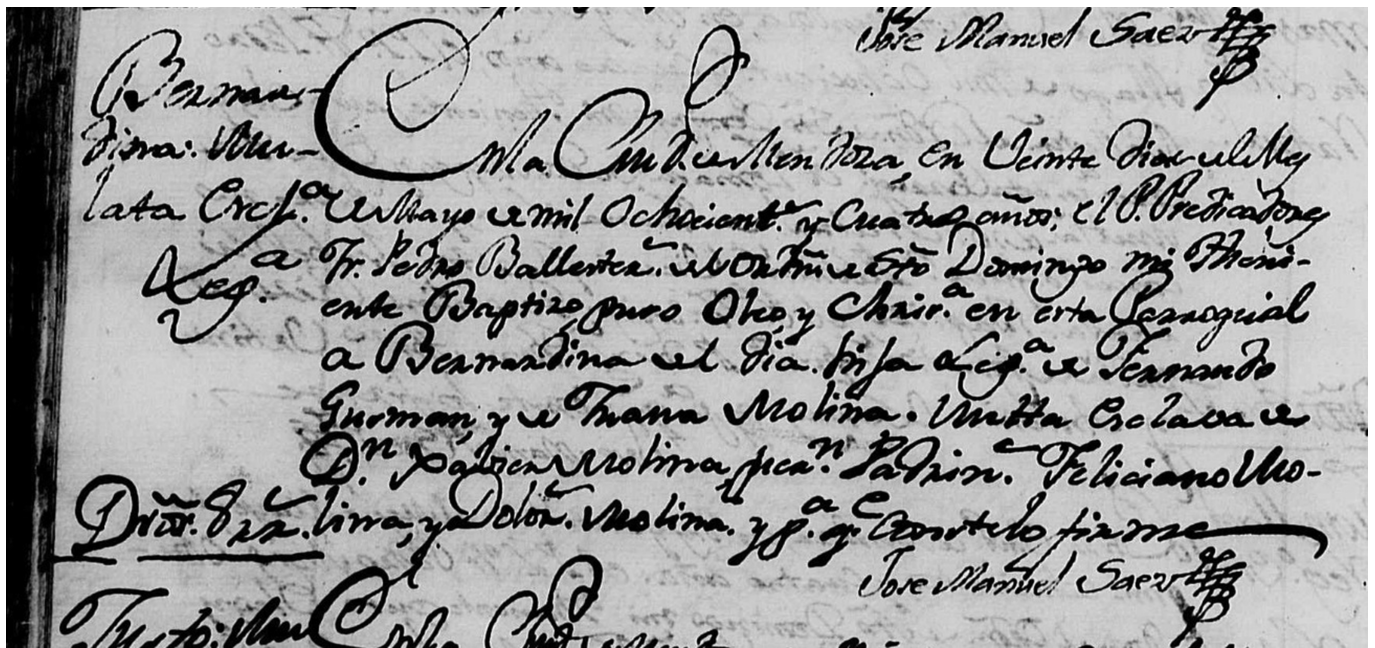 Jose Manuel Saez
Bernar-
dina. Mu-
lata Escl.ª
Leg.ª
En la Ciud. de Mendoza, en Veinte dias del Mes
de Mayo de mil Ochocient.s y Cuatro años; el P. Predicador
Fr. Pedro Ballester. del Ordñ de Sto Domingo mi Theni-
ente Baptizo, puso Oleo, y Chris.ª en esta Parroquial
a Bernardina del dia. hija Leg.ª de Fernando
Guzman, y de Juana Molina. Mtta Esclava de
D.n Xabier Molina, fuer.n Padrin.s Feliciano Mo-
lina, y Dolor.s Molina. y p.ª q.e Conste lo firme
Jose Manuel Saez
Justo. Mu
En la Ciud. de Mend